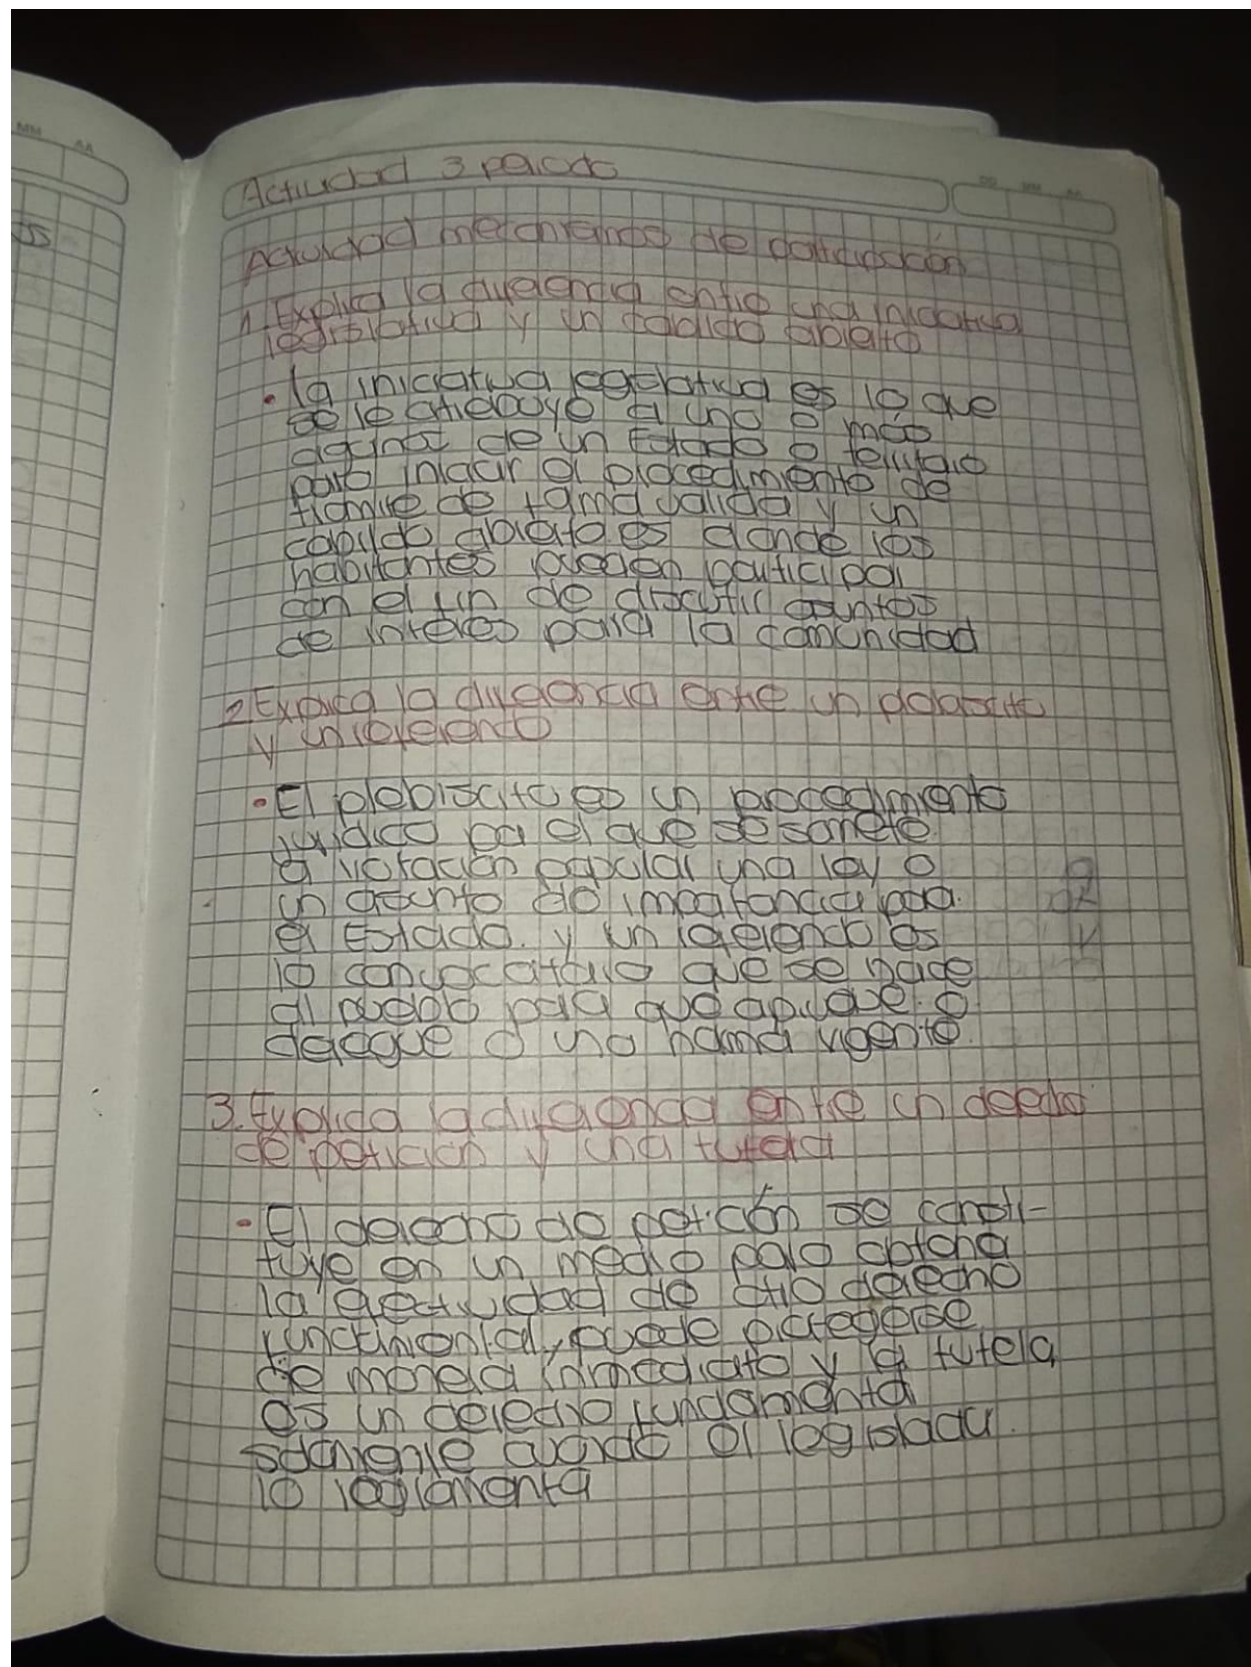 MM AA
os
DD MM AA
Actividad 3 periodo
Actividad mecanismos de participación
1. Explica la diferencia entre una iniciativa
legislativa y un cabildo abierto
• la iniciativa legislativa es lo que
se le atribuye a uno o más
de un Estado o territorio
para iniciar el procedimiento de
tramite de forma valida y un
cabildo abierto es donde los
habitantes pueden participar
con el fin de discutir asuntos
de interes para la comunidad
2. Explica la diferencia entre un
y un referendo
• El plebiscito es un procedimiento
juridico por el que se somete
a votación popular una ley o
un asunto de importancia para
el Estado. y un referendo es
la que se hace
al pueblo para que apruebe o
derogue o una norma vigente.
3. Explica la diferencia entre un
de petición y una tutela
• El derecho de petición se consti-
tuye en un medio para obtener
la efectividad de otro derecho
fundamental, puede protegerse
de manera inmediata y la tutela
es un derecho fundamental
cuando el legislador
lo reglamenta